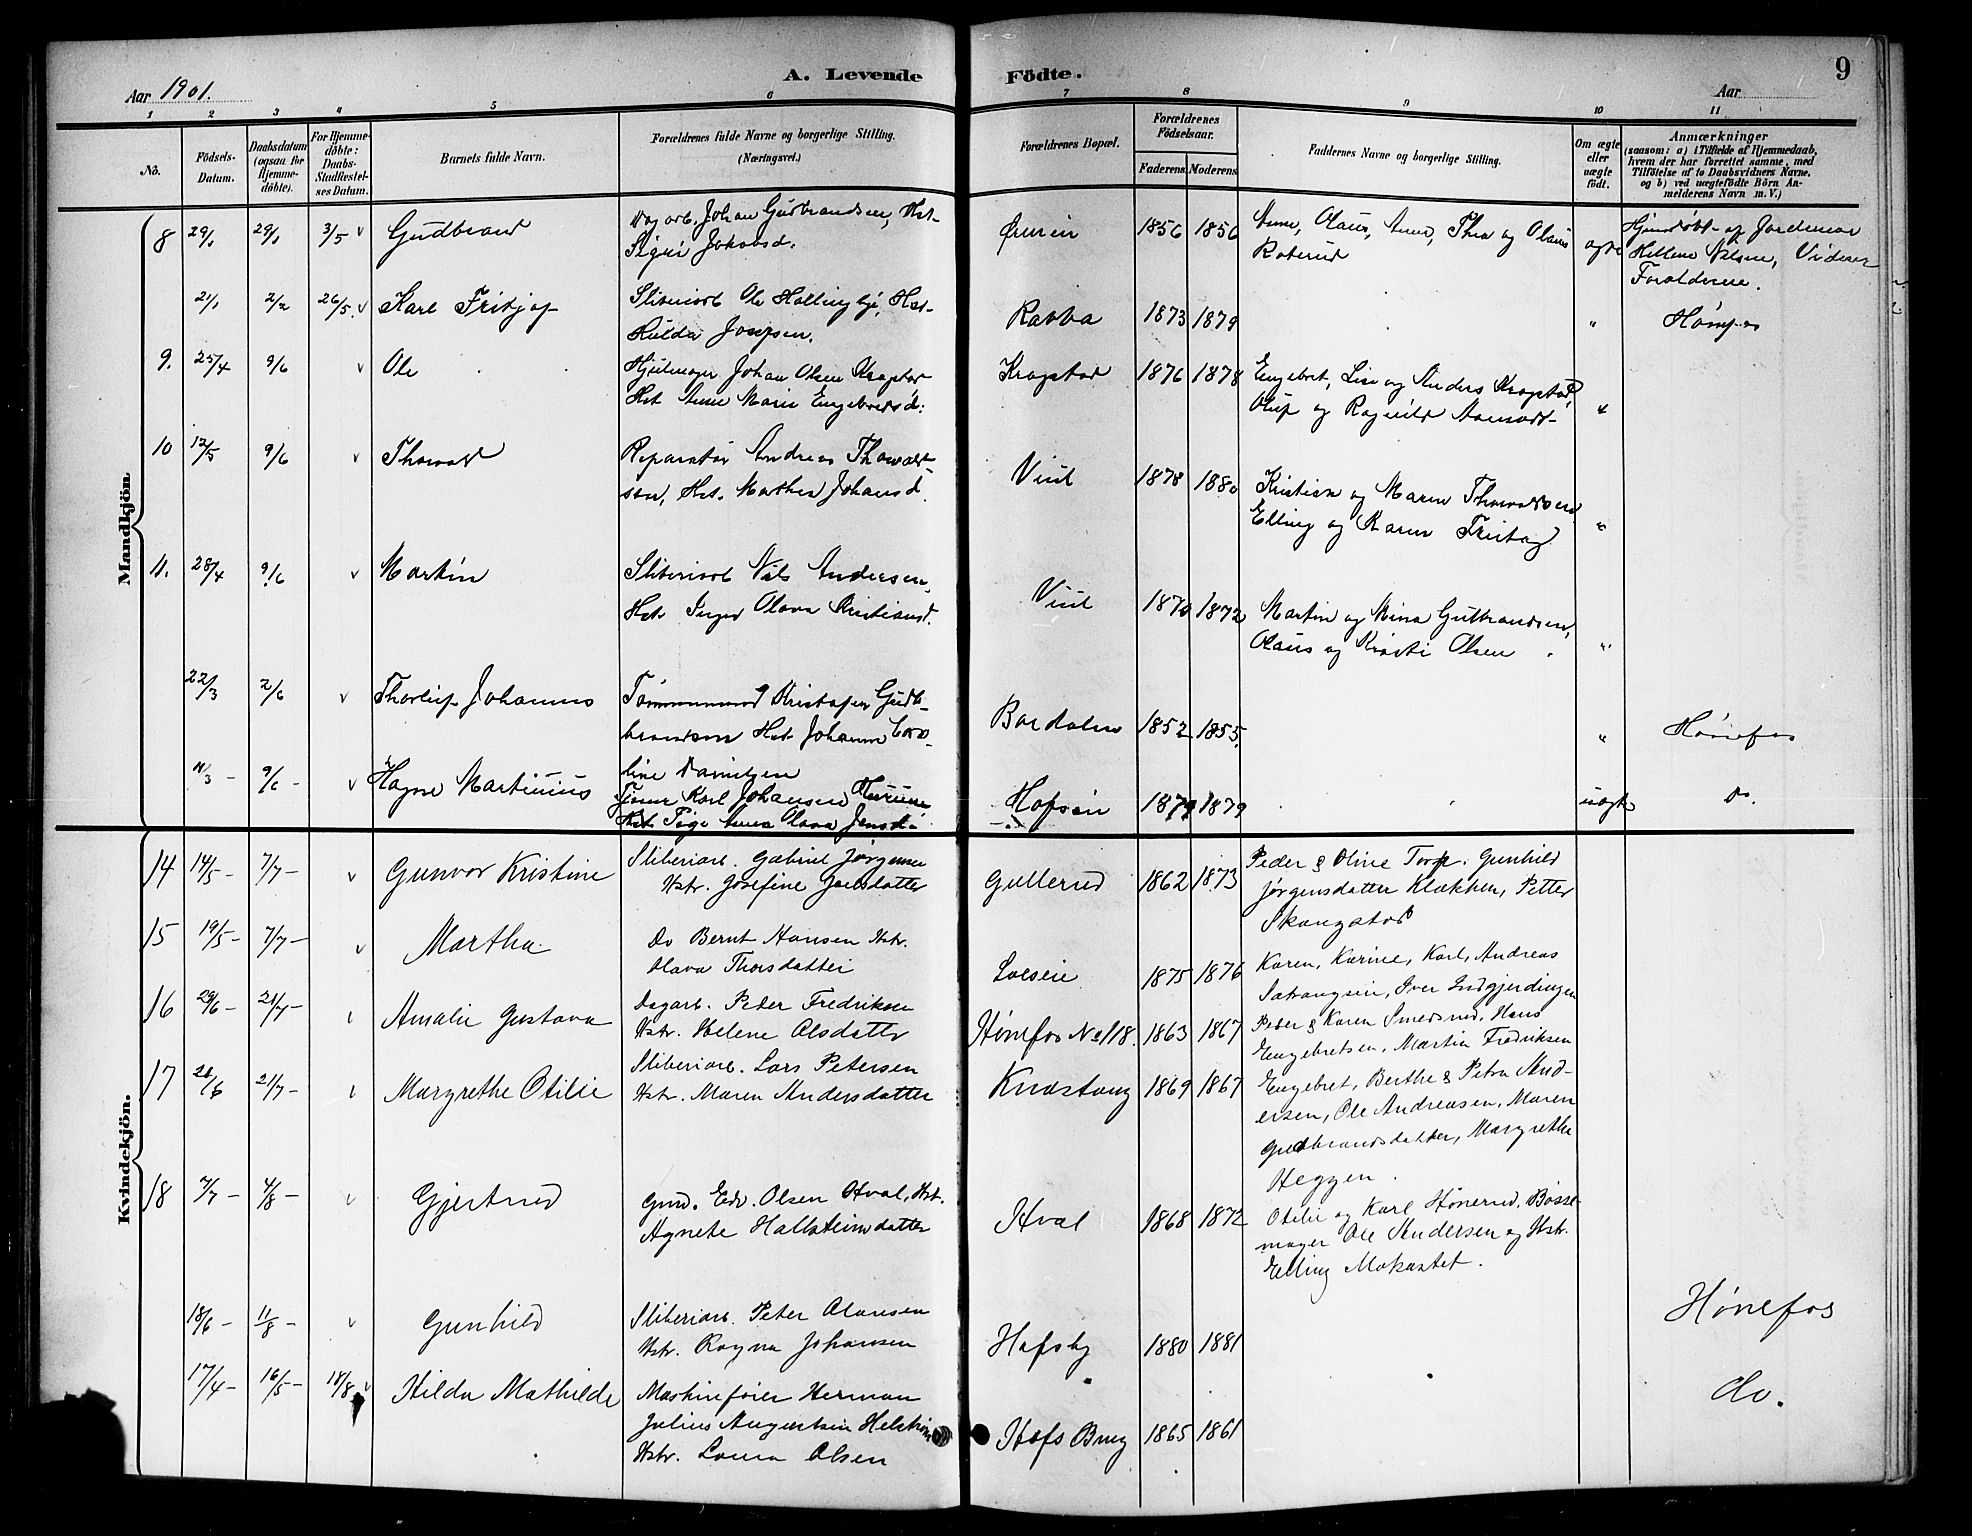 Aar 1901.
A. Levende Födte.
Aar
9
1 2 3 4 5 6 7 8 9 10 11
No.
Födsels-Datum.
Daabsdatum (ogsaa for Hjemme-döbte).
For Hjemme-döbte: Daabs-Stadfæstel-ses Datum.
Barnets fulde Navn.
Forældrenes fulde Navne og borgerlige Stilling. (Næringsvei.)
Forældrenes Bopæl.
Forældrenes Födselsaar.
Faderens. Moderens.
Faddernes Navne og borgerlige Stilling.
Om ægte eller uægte födt.
Anmærkninger
(saasom: a) i Tilfælde af Hjemmedaab, hvem der har forrettet samme, med Tilföielse af to Daabsvidners Navne, og b) ved uægtefödte Börn An-melderens Navn m. V.)
Mandkjön.
8 29/1 29/1 3/5 Gudbrand
Dagarb. Johan Gudbrandsen, Hst.
Sigri Jakobsd.
1856 1856
Anne, Olaus, Anne, Thea og Olaus
Roterud
ægte
Hjemdöbt af Jordemor
Hellene Nilsen, Vidner
Forældrene.
21/1 2/2 26/5 Karl Fritjof
Sliberiarb Ole Hallingby, Hst.
Hulda Josefsen.
Rabba 1873 1879 "
Hønefos
9. 25/4 9/6 Ole
Hjulmager Johan Olsen Kragstad
Hst. Anne Marie Engebretsd:
Kragstad 1876 1878
Engebret, Lise og Anders Kragstad,
Oluf og Ragnild
"
10 12/5 9/6 Thorvald
Reparatør Andreas Thorvald-
sen, Hst. Marthea Johansd.
Viul 1878 1880
Kristian og Maren Thorvaldsen
Elling og Karen Fritag.
"
11. 28/4 9/6 Martin
Sliberiarb Nils Andersen,
Hst. Inger Olava Kristiansd.
Viul 1870 1872
Martin og Mina Gulbrandsen,
Olaus og Kristi Olsen.
"
22/3 2/6 Thorleif Johannes
Tømmermand Kristofer Gudb-
brandsen Hst. Johanne Caro-
line Danielsen
Bardalen 1852 1855. "
Hønefos
11/3 - 9/6 - Hagne Martinius
Tjener Karl Johansen
Pige Anna Olava Jensd.
Hofsen 1879 1879 uægte
Do.
Kvindekjön.
14 14/5 - 7/7 - Gunvor Kristine
Sliberiarb. Gabriel Jørgensen
Hstr. Josefine Joelsdatter
Gullerud 1862 1873
Peder & Oline Torp. Gunhild
Jørgensdatter Klækken, Petter
Skaugstad
15 19/5 - 7/7 - Martha.
Do Bernt Hansen Hstr.
Olava Thorsdatter
1875 1876
Karen, Karine, Karl, Andreas
Iver Indgjerdingen
16 29/6 - 21/7 - Amalie Gustava
Dagarb. Peter Fredriksen
Hstr. Helene Olsdatter
Hønefos No 118. 1863 1867
Peder & Karen Smedsrud, Hans
Engebretsen, Martin Fredriksen
17 21/6 21/7 - Margrethe Otilie
Sliberiarb. Lars Petersen
Hstr. Maren Andersdatter
Knastang 1869 1867
Engebret, Berthe & Petra And-
ersen, Ole Andreasen, Maren
Gudbrandsdatter, Margrethe
Heggen.
18 7/7 - 4/8 - Gjertrud
Grd. Edv. Olsen Hval, Hst.
Agnete Hallsteinsdatter
Hval 1868 1872
Otilie og Karl Hønerud, Bøsse-
mager Ole Andersen og Hstr.
Elling Mokastet.
18/6 - 11/8 - Gunhild
Sliberiarb. Peter Olausen
Hstr. Ragna Johansen
Hofsby 1880 1881
Hønefos
17/4 - 16/5 - 18/8 Hilda Mathilde
Maskinfører Herman
Julius Augustsen Helstrøm
Hstr. Laura Olsen
Hofs Brug 1865 1861
do.